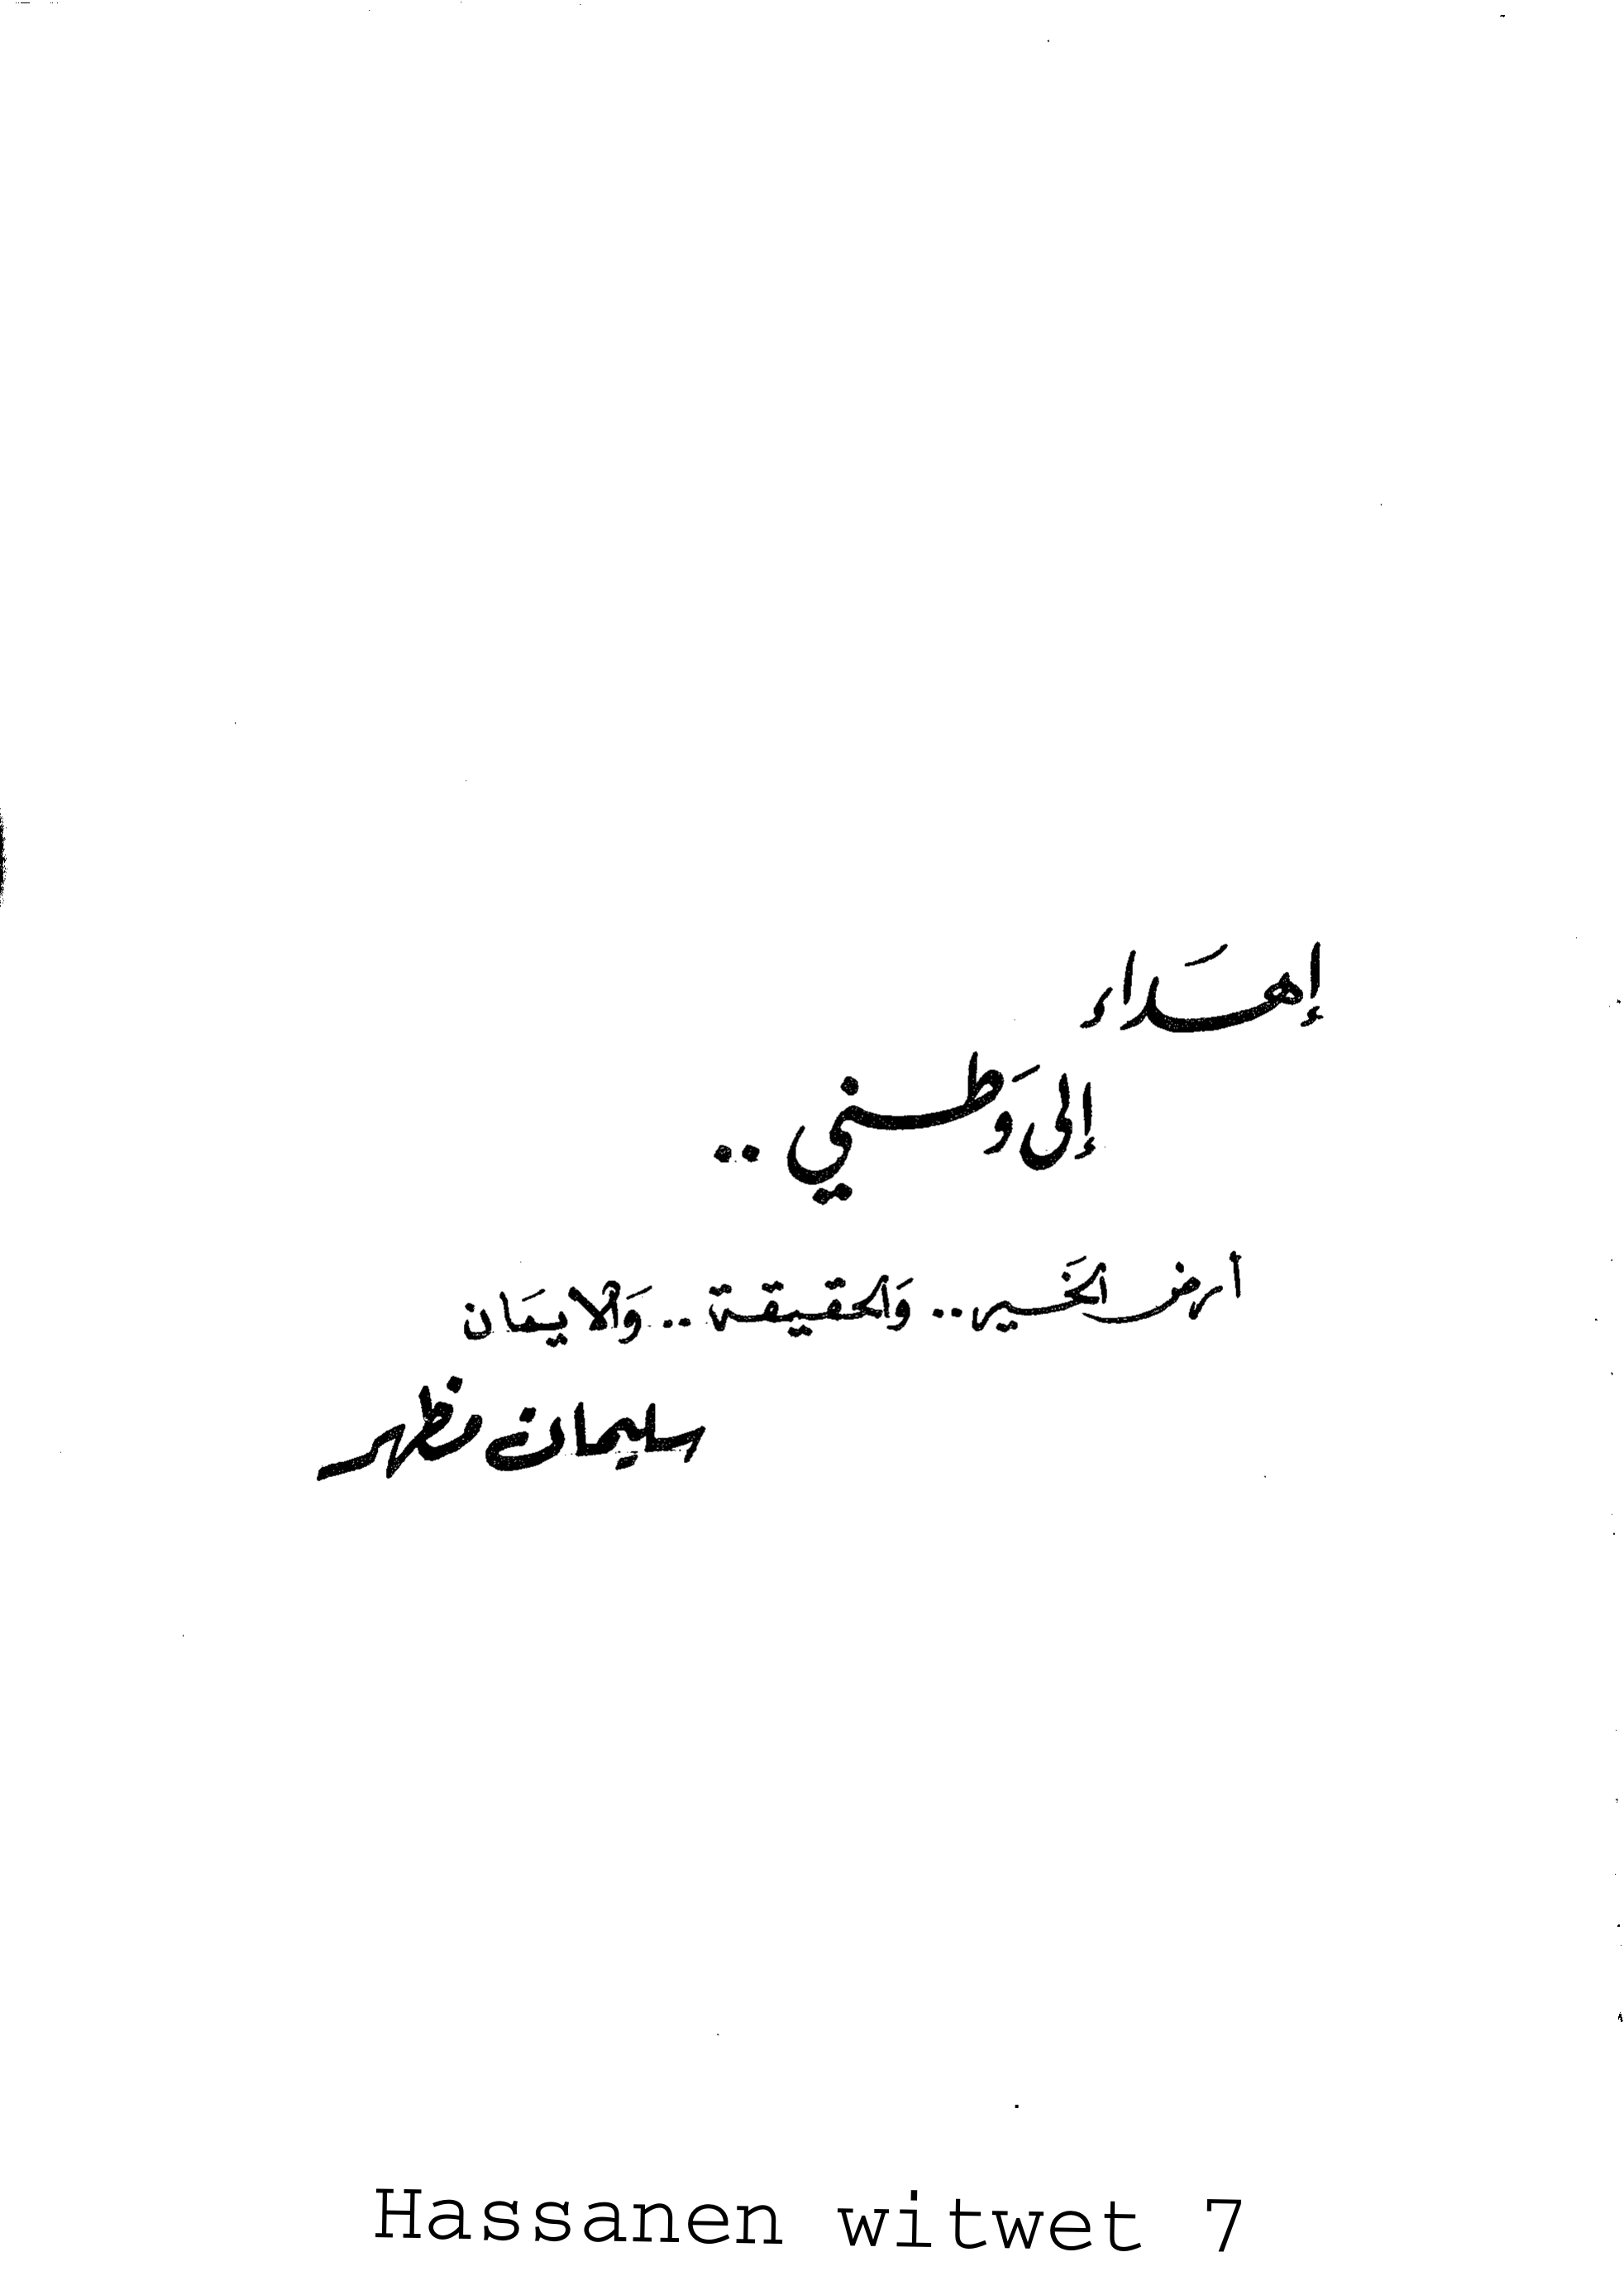 إهَداء
إلى وَطني ..
أرض الخَير .. وَالحقيقة .. وَالايمَان
سليمان مظهر
Hassanen witwet 7